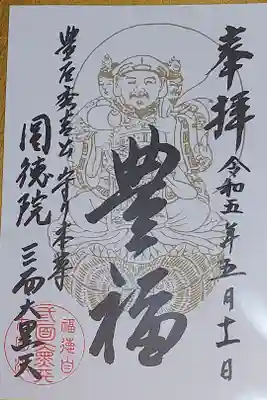 奉拝
令和五年五月十一日
豊福
豊臣秀吉公 守り本尊
圓徳院
三面大黒天